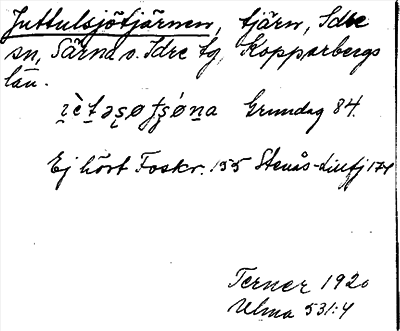 Juttulsjötjärnen, tjärn, Idre
sn, Särna o. Idre tg, Kopparbergs
län.
Grundag 84.
Ej hört Foskr. 155 Stenås-
Terner 1920
Ulma 531:4